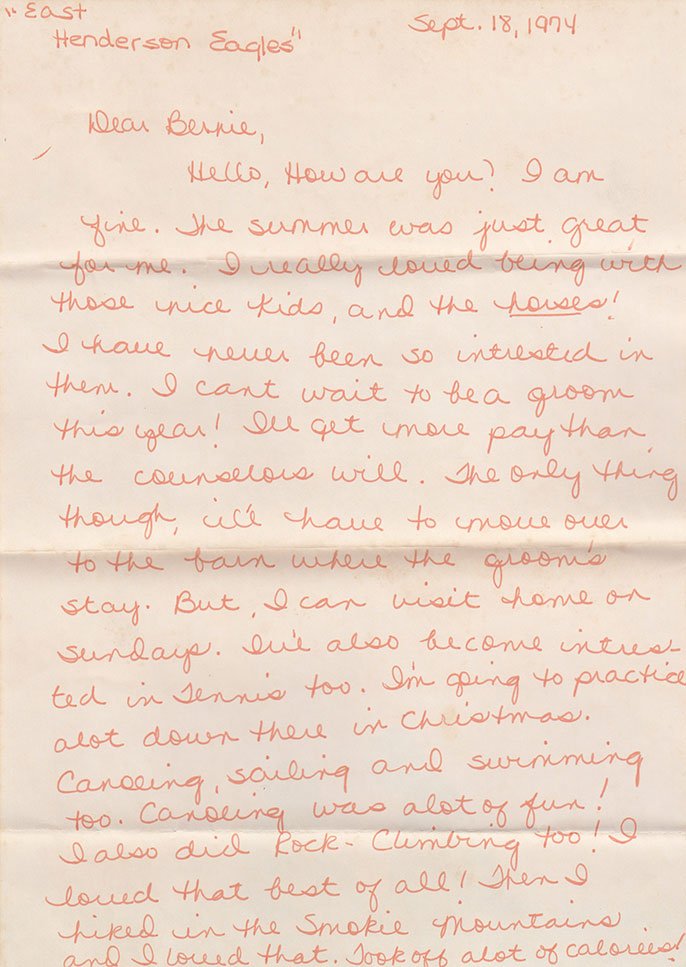 "East
Henderson Eagles"
Sept. 18, 1974
Dear Bernie,
Hello, How are you? I am
fine. The summer was just great
for me. I really loved being with
those nice kids, and the horses!
I have never been so intrested in
them. I cant wait to be a groom
this year! I'll get more pay than
the counselors will. The only thing
though, i'll have to move over
to the barn where the groom's
stay. But, I can visit home on
sundays. I've also become intres-
ted in Tennis too. I'm going to practice
alot down there in Christmas.
Canoeing, sailing and swimming
too. Canoeing was alot of fun!
I also did Rock-Climbing too! I
loved that best of all! Then I
hiked in the Smokie Mountains
and I loved that. Took off alot of calories!